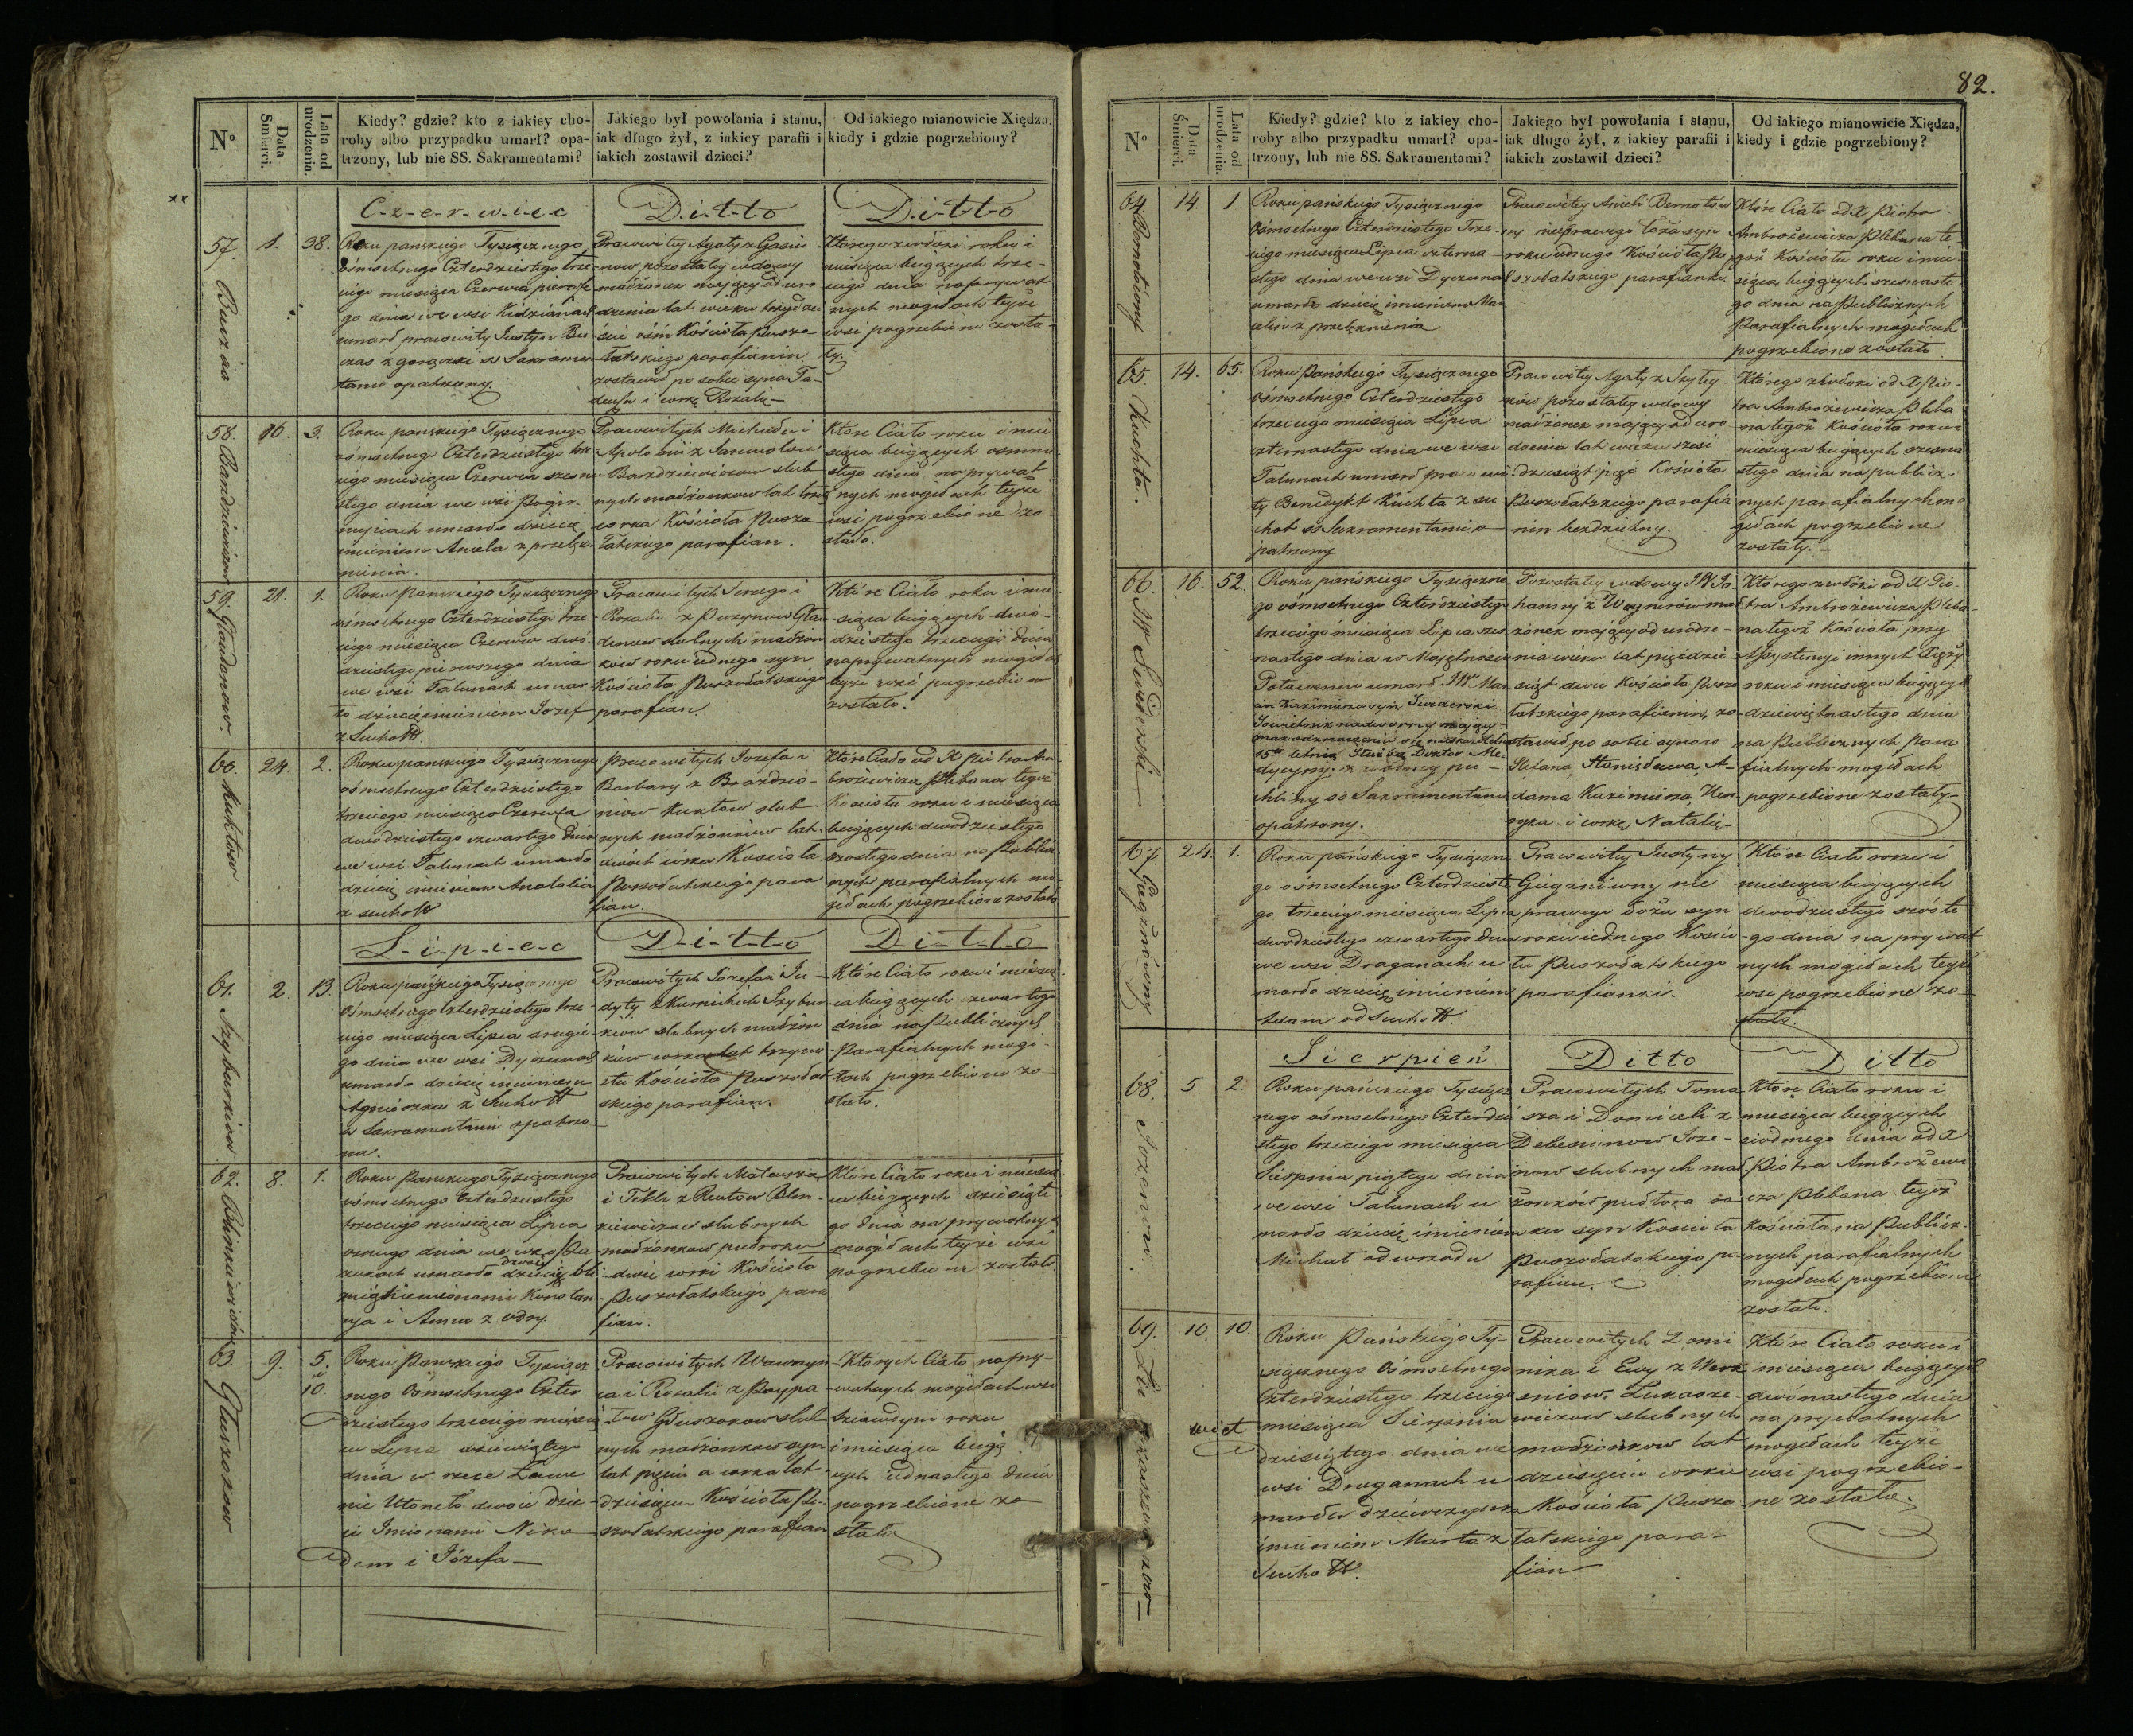 Nº
Data Śmierci.
Lata od urodzenia.
Kiedy? gdzie? kto z iakiey cho-
roby albo przypadku umarł? opa-
trzony, lub nie SS. Sakramentami?
Jakiego był powołania i stanu,
iak długo żył, z iakiey parafii i
iakich zostawił dzieci?
Od iakiego mianowicie Xiędza,
kiedy i gdzie pogrzebiony?
C-z-e-r-w-i-e-c
D-i-t-t-o
D-i-t-t-o
57.
1.
38.
Roku panskiego Tysiącznego
ośmsetnego Czterdziestego trze-
ciego miesiąca Czerwca pierwsze
go dnia we wsi
umarł pracowity Justyn Bu
czas z gorączki SS Sakramen
tami opatrzony.
pozostałey wdowy
małżonek maiący od uro
dzenia lat wieku trzydzie
ści ośm Kościoła Pusza
łatskiego parafianin
zostawił po sobie syna Ta-
deusza i corkę Rozalią—
Którego zwłoki roku i
miesiąca bieżących trze-
ciego dnia na prywat
nych mogiłach teyże
wsi pogrzebione zosta-
ły.
58.
16.
3.
Roku panskiego Tysiącznego
ośmsetnego Czterdziestego trze
ciego miesiąca Czerwca szesna
stego dnia we wsi
umarło dziecię
imieniem Aniela z przelęk-
nienia.
Pracowitych Michała i
ślub
nych małżonkow lat trzy
corka Kościoła Pusza
łatskiego parafian.
Które Ciało roku i mie
siąca bieżących ośmna-
stego dnia na prywat
nych mogiłach teyże
wsi pogrzebione zo-
stało.
59.
21.
1.
Roku panskiego Tysiącznego
ośmsetnego Czterdziestego trze-
ciego miesiąca Czerwca dwó-
dziestego pierwszego dnia
we wsi Talunach umar
ło dziecię imieniem Jozef
z Suchott.
Pracowitych Jerzego i
Rozalii z
slubnych małżon
ków roku iednego syn
Kościoła Puszołatskiego
parafian.
Które Ciało roku i mie-
siąca bieżących dwó-
dziestego trzeciego dnia
na prywatnych mogiłach
teyże wsi pogrzebione
zostało.
60. Kuktow
24.
2.
Roku panskiego Tysiącznego
ośmsetnego Czterdziestego
trzeciego miesiąca Czerwca
dwódziestego czwartego dnia
we wsi Talunach umarło
dziecię imieniem Anatolia
z suchott
Pracowitych Jozefa i
Barbary z
niow Kuktow slub
nych małżonków lat
dwóch córka Kościoła
Puszołatskiego para
fian.
Które Ciało od X Piotra Am-
brożewicza Plebana tegoż
Kościoła roku i miesiąca
bieżących dwódziestego
szóstego dnia na Public
nych parafialnych mo-
giłach pogrzebione zostało
L-i-p-i-e-c
D-i-t-t-o
D-i-t-t-o
61. Szyburkiów
2.
13.
Roku pańskiego Tysiącznego
ośmsetnego Czterdziestego trze-
ciego miesiąca Lipca drugie
go dnia we wsi Dyczunach
umarło dziecię imieniem
Agnieszka z Suchott
SS Sakramentami opatrzo
na.
Pracowitych Józefa i Ju-
dyty z
slubnych małżon
ków corka lat trzyna
stu Kościoła Puszołat
skiego parafian.
Które Ciało roku i miesią
ca bieżących czwartego
dnia na Publicznych
Parafialnych mogi-
łach pogrzebione zo-
stało.
62.
8.
1.
Roku Panskiego Tysiącznego
ośmsetnego Czterdziestego
trzeciego miesiąca Lipca
osmego dnia we wsi
umarło dwoie dziecię bli
źniąt imionami Konstan
cja i Anna z odry.
Pracowitych Mateusza
i Tekli z
slubnych
małżonkow pułroku
dwie corki Kościoła
Puszołatskiego para
fian.
Które Ciało roku i miesią
ca bieżących dziesiąte
go dnia na prywatnych
mogiłach teyże wsi
pogrzebione zostało.
63. Głuszonow
9.
5. i 10.
Roku Panskiego Tysiącz
nego Ośmsetnego Czter
dziestego trzeciego miesią
ca Lipca dziewiątego
dnia w rzece Ławe
nie Utoneło dwoie dzie
ci Imionami Niko
dem i Józefa—
Pracowitych Wawrzyn
ca i Rozalii z
Głuszonow slub
nych małżonkow syn
lat pięciu a corka lat
dziesięciu Kościoła Pu-
szołatskiego parafian
Których Ciało na pry-
watnych mogiłach wsi
roku
i miesiąca bieżą
cych iednastego dnia
pogrzebione zo-
stało
82.
Nº
Data Śmierci.
Lata od urodzenia.
Kiedy? gdzie? kto z iakiey cho-
roby albo przypadku umarł? opa-
trzony, lub nie SS. Sakramentami?
Jakiego był powołania i stanu,
iak długo żył, z iakiey parafii i
iakich zostawił dzieci?
Od iakiego mianowicie Xiędza,
kiedy i gdzie pogrzebiony?
64.
14.
1.
Roku pańskiego Tysiącznego
ośmsetnego Czterdziestego Trze-
ciego miesiąca Lipca czterna-
stego dnia we wsi Dyczunach
umarło dziecię imieniem Mar
z przelęknienia
Pracowitey Anieli Bernotów
ny nieprawego Łoża syn
roku iednego Kościoła Pu
szołatskiego parafianki.
Które Ciało od X Piotra
Ambrożewicza Plebana te-
goż Kościoła roku i mie-
siąca bieżących szesnaste
go dnia na Publicznych
Parafialnych mogiłach
pogrzebione zostało
65. Kuchta.
14.
65.
Roku Panskiego Tysiącznego
ośmsetnego Czterdziestego
trzeciego miesiąca Lipca
czternastego dnia we wsi
Talunach umarł pracowi
ty Benedykt Kuchta z su
chot SS Sakramentami o-
patrzony
Pracowitey Agaty z
pozostałey wdowy
małżonek maiący od uro
dzenia lat wieku sześć
dziesiąt pięć Kościoła
Puszołatskiego parafia
nin bezdzietny.
Którego zwłoki od X Pio-
tra Ambrożewicza Pleba
na tegoż Kościoła roku i
miesiąca bieżących szesna
stego dnia na publicz-
nych parafialnych mo
giłach pogrzebione
zostały.—
66. JW Swiderski
16.
52.
Roku pańskiego Tysiączne
go ośmsetnego Czterdziestego
trzeciego miesiąca Lipca szes
nastego dnia w Majętności
Potaweniu umarł JW Mar
cin Kazimierza syn Swiderski
Sowietnik nadworny maiący
znak odznaczenia się nieskazitelną
15to letnią Służbą Doktor Me-
dycyny z wodney pu-
chliny SS Sakramentami
opatrzony.
Pozostałey wdowy JW Jo-
hanny z Wagnerów mał
żonek maiący od urodze-
nia wieku lat pięćdzie
siąt dwie Kościoła Pusza
łatskiego parafianin, zo-
stawił po sobie synow
Stefana, Stanisława, A-
dama Kazimierza, Hen
ryka i corkę Natalią—
Którego zwłoki od X Pio-
tra Ambrożewicza Pleba-
na tegoż Kościoła przy
Assystencyi innych Xięży
roku i miesiąca bieżących
dziewiętnastego dnia
na Publicznych Para
fialnych mogiłach
pogrzebione zostały—
67.
24.
1.
Roku pańskiego Tysiączne
go ośmsetnego Czterdzieste
go trzeciego miesiąca Lipca
dwodziestego czwartego dnia
we wsi Draganach u
marło dziecię imieniem
Adam od Suchott.
Pracowitey Justyny
nie
prawego Łoża syn
roku iednego Kościo
ła Puszołatskiego
parafianki.
Które Ciało roku i
miesiąca bieżących
dwodziestego szóste
go dnia na prywat
nych mogiłach teyże
wsi pogrzebione zo-
stało.
Sierpień
Ditto
Ditto
68. Jozenow.
5.
2.
Roku pańskiego Tysiącz
nego ośmsetnego Czterdzie
stego trzeciego miesiąca
Sierpnia piątego dnia
we wsi Talunach u
marło dziecię imieniem
Michał od wrzodu
Pracowitych Toma
sza i Domiceli z
Joze-
now slubnych mał
żonków pułtora ro
ku syn Kościoła
Puszołatskiego pa
rafian.
Które Ciało roku i
miesiąca bieżących
siodmego dnia od X
Piotra Ambrożewi
cza Plebana tegoż
Kościoła na Public-
nych parafialnych
mogiłach pogrzebione
zostało.
69.
10.
10.
Roku Pańskiego Ty-
siącznego Ośmsetnego
Czterdziestego trzeciego
miesiąca Sierpnia
dziesiątego dnia we
wsi Draganach u
marła dziewczynka
imieniem Marta z
Suchott.
Pracowitych Domi
nika i Ewy z
Łukasze-
wiczow slubnych
małżonkow lat
dziesięciu corka
Kościoła Puszo
łatskiego para-
fian
Które Ciało roku i
miesiąca bieżących
dwónastego dnia
na prywatnych
mogiłach teyże
wsi pogrzebio-
ne zostało.